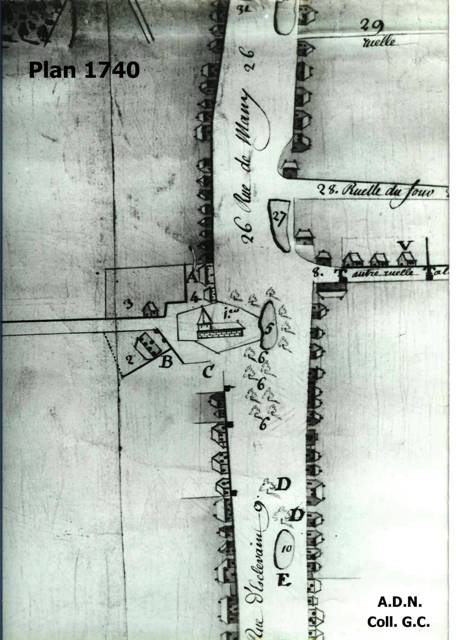 Plan 1740
32
29
ruelle
26
26 Rue de
28. Ruelle du four
27
V
A
8.
T
autre ruelle
T
al
3
4
1er
5
2
B
C
6
6
6
9.
D
D
10
E
Rue d'Esclevain
A.D.N.
Coll. G.C.